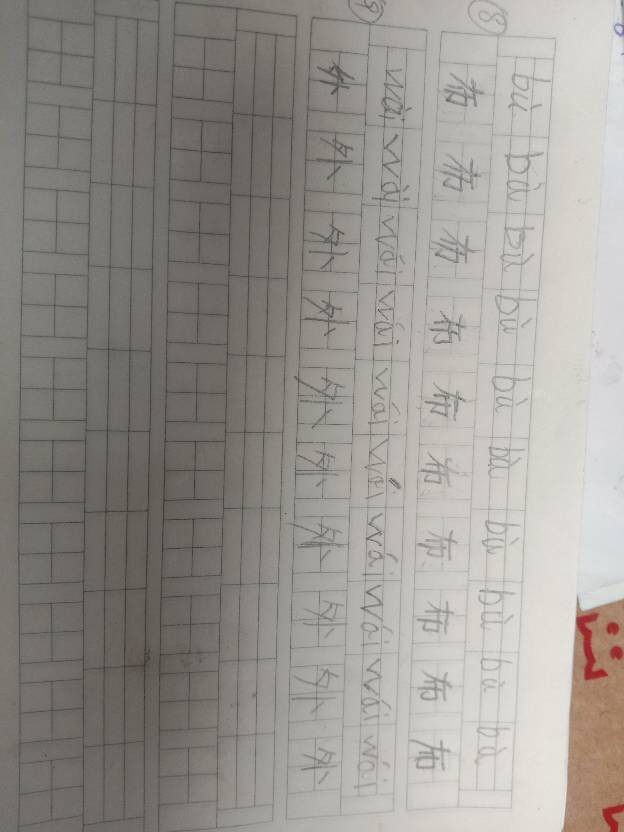 ⑧
bù bù bù bù bù bù bù bù bù bù
布 布 布 布 布 布 布 布 布 布
⑨
wài wài wài wài wài wài wài wài wài wài
外 外 外 外 外 外 外 外 外 外